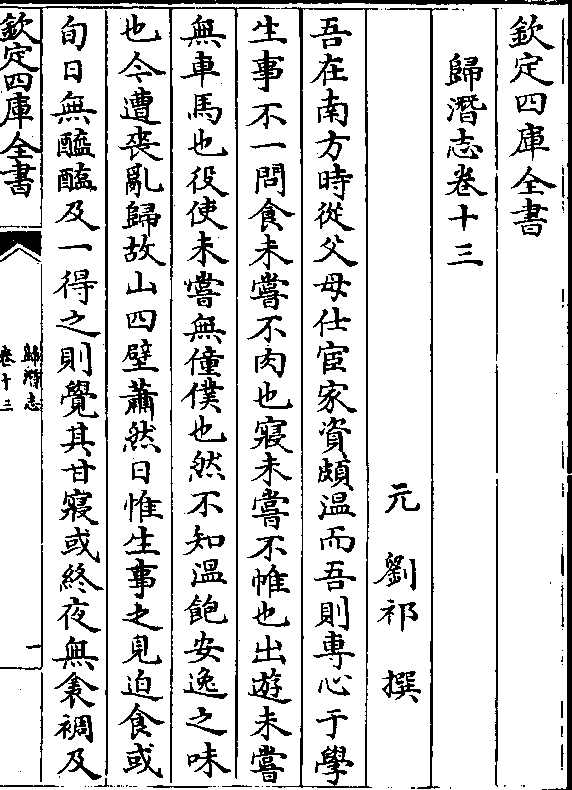 欽定四庫全書
歸潛志卷十三
元 劉祁 撰
吾在南方時從父母仕宦家資頗温而吾則專心于學
生事不一問食未嘗不肉也寢未嘗不帷也出遊未嘗
無車馬也役使未嘗無僮僕也然不知温飽安逸之味
也今遭喪亂歸故山四壁蕭然日惟生事之見迫食或
旬日無醯醢及一得之則覺其甘寢或終夜無衾裯及
欽定四庫全書
歸潛志
卷十三
一